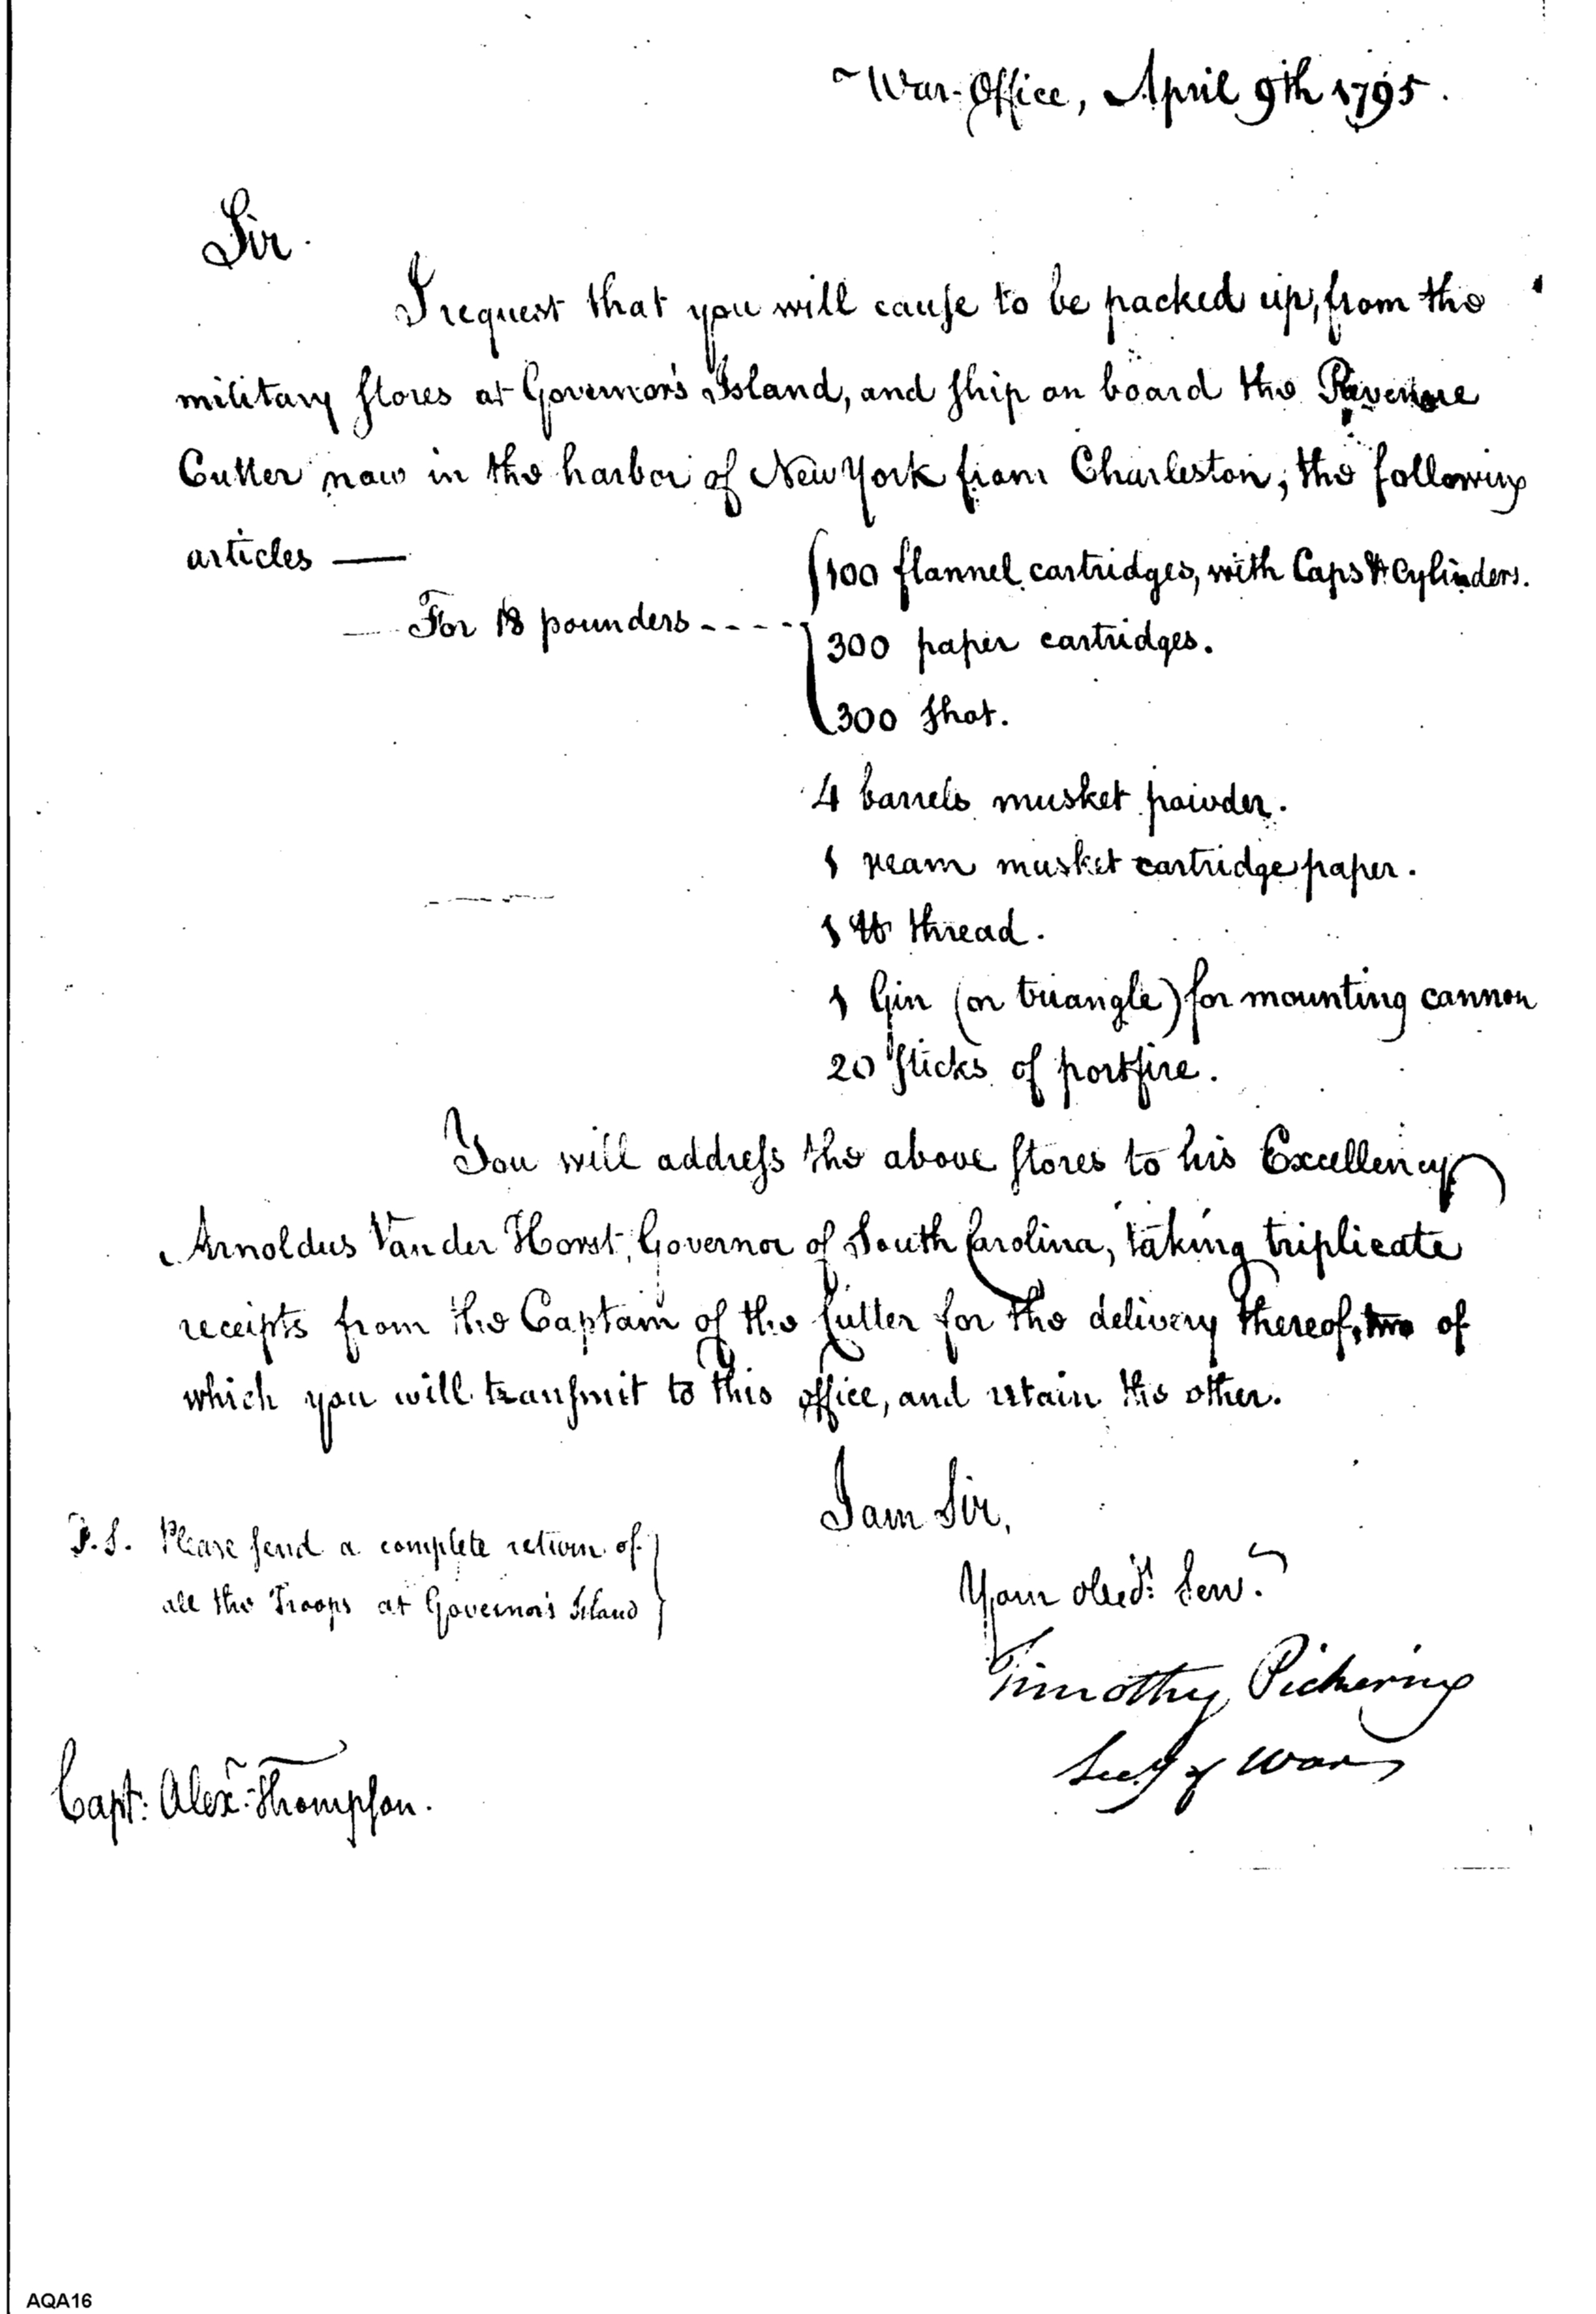 War-Office, April 9th 1795.
Sir.
I request that you will cause to be packed up, from the
military stores at Governor's Island, and ship on board the Revenue
Cutter now in the harbor of New York from Charleston, the following
articles —
For 18 pounders ---- { 100 flannel cartridges, with Caps & Cylinders.
300 paper cartridges.
300 shot.
4 barrels musket powder.
1 ream musket cartridge paper.
1 lb thread.
1 Gin (or triangle) for mounting cannon
20 sticks of portfire.
You will address the above stores to his Excellency
Arnoldus Vander Horst, Governor of South Carolina, taking triplicate
receipts from the Captain of the Cutter for the delivery thereof, two of
which you will transmit to this office, and retain the other.
I am Sir,
Your obedt. Servt.
Timothy Pickering
Secy of War
P.S. Please send a complete return of
all the Troops at Governor's Island
Capt: Alexr. Thompson.
AQA16